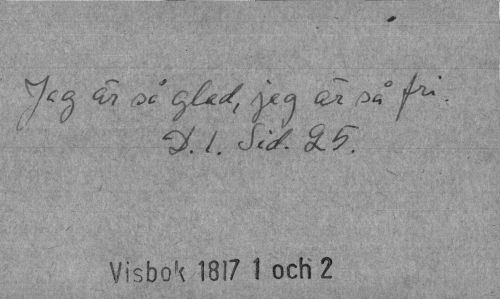 Jag är så glad, jag är så fri.
D. 1. Sid. 25.
Visbok 1817 1 och 2